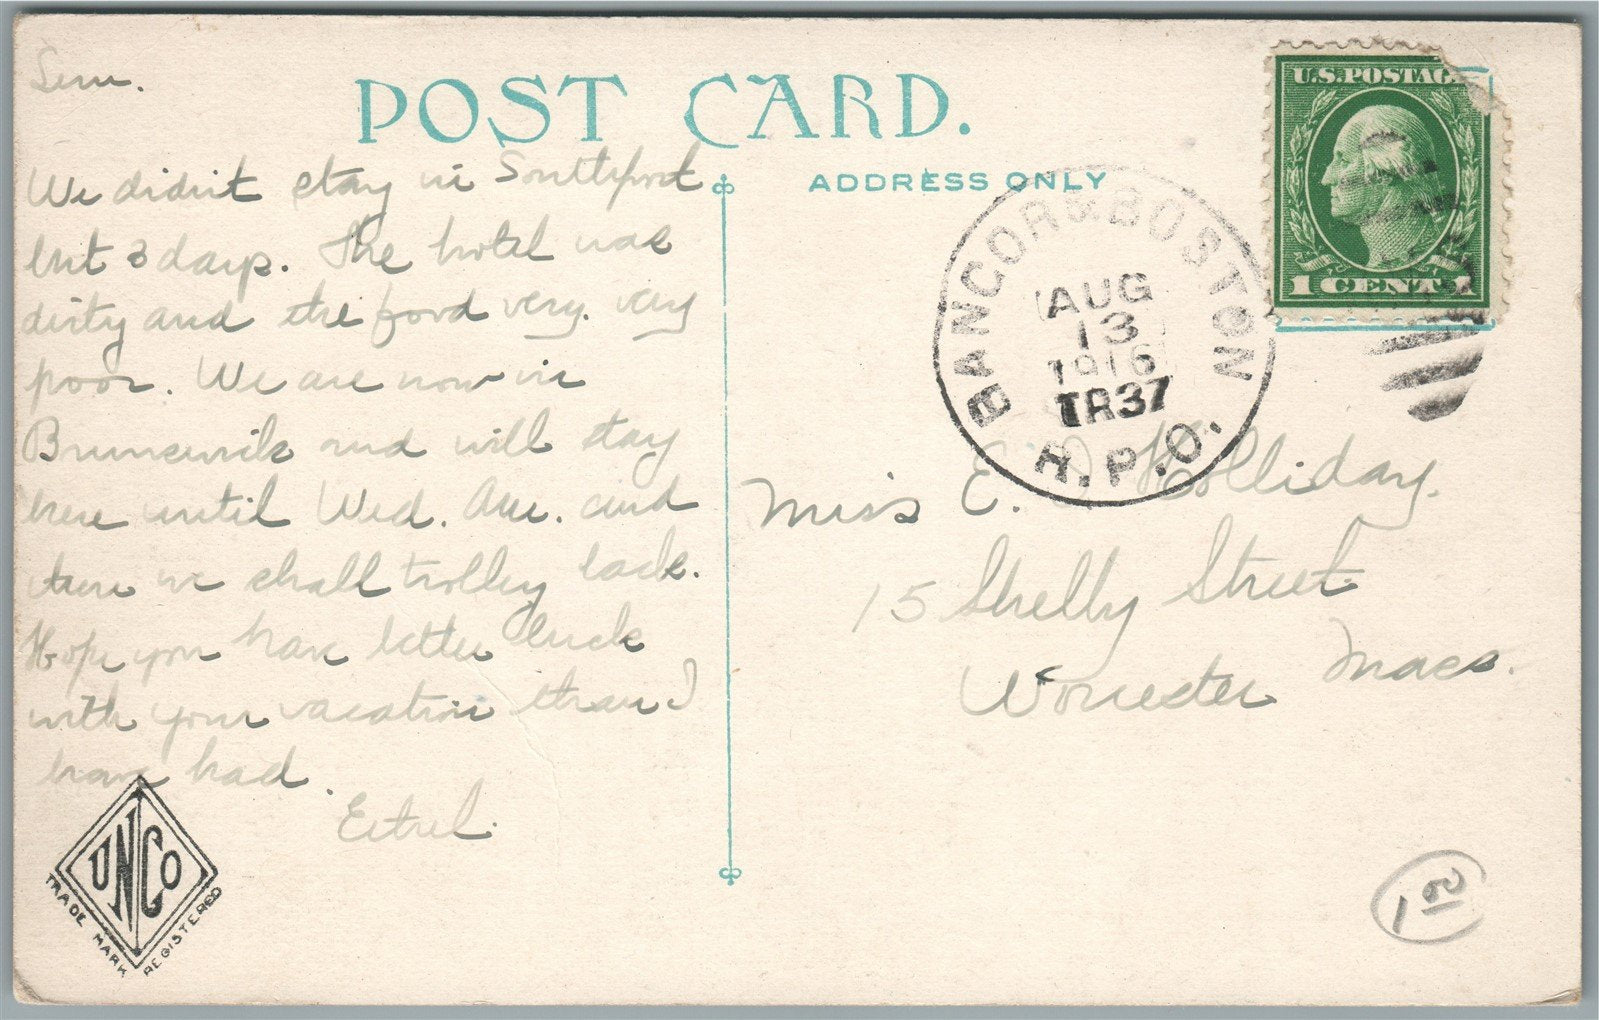 Sun.
POST CARD.
ADDRESS ONLY
We didn't stay in Southport
but 3 days. The hotel was
dirty and the food very, very
poor. We are now in
Brunswick and will stay
here until Wed. Am. and
then we shall trolley back.
Hope you have better luck
with your vacation than I
have had.
Ethel.
UNCO
TRADE MARK REGISTERED
U.S. POSTAGE
1 CENT 1
BANGOR & BOSTON
AUG
13
1916
TR37
R.P.O.
Miss E. Holliday.
15 Shelby Street
Worcester Mass.
1 00